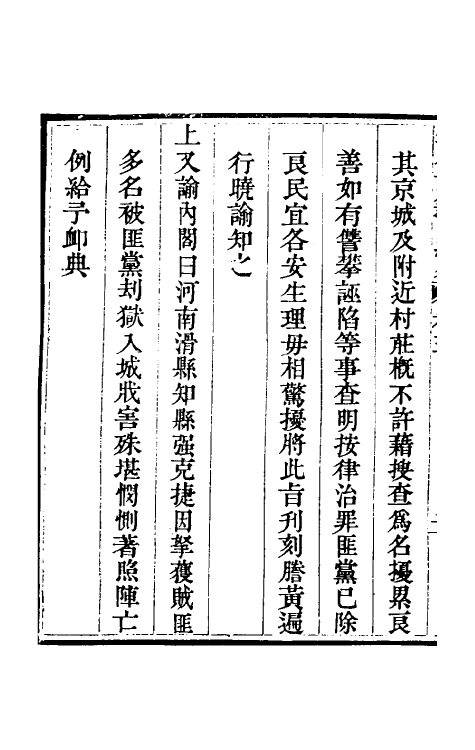 其京城及附近村莊槪不許藉搜查爲名擾累良
善如有讐攀誣陷等事查明按律治罪匪黨已除
良民宜各安生理毋相驚擾將此旨刋刻謄黃遍
行曉諭知之
上又諭內閣曰河南滑縣知縣强克捷因拏獲賊匪
多名被匪黨刦獄入城戕害殊堪憫惻著照陣亡
例給予卹典